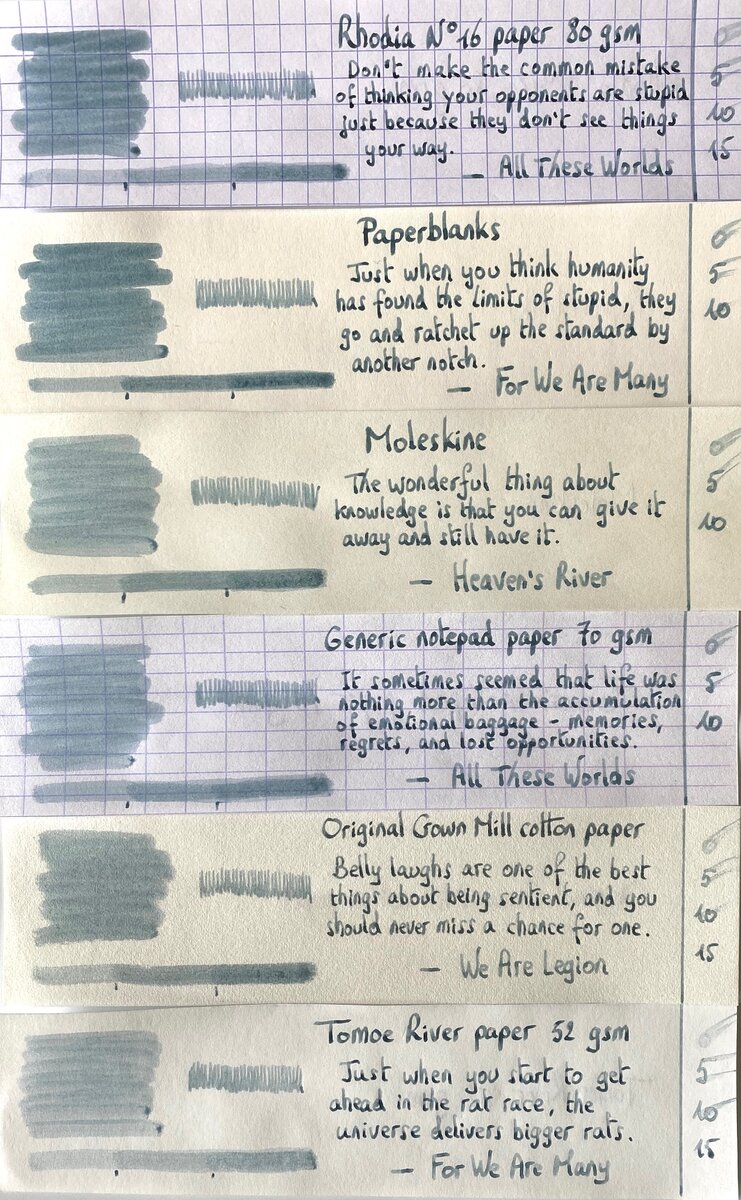 Rhodia N°16 paper 80 gsm
Don't make the common mistake
of thinking your opponents are stupid
just because they don't see things
your way.
— All These Worlds
0
5
10
15
Paperblanks
Just when you think humanity
has found the limits of stupid, they
go and ratchet up the standard by
another notch.
— For We Are Many
0
5
10
Moleskine
The wonderful thing about
knowledge is that you can give it
away and still have it.
— Heaven's River
0
5
10
Generic notepad paper 70 gsm
It sometimes seemed that life was
nothing more than the accumulation
of emotional baggage – memories,
regrets, and lost opportunities.
— All These Worlds
0
5
10
Original Crown Mill cotton paper
Belly laughs are one of the best
things about being sentient, and you
should never miss a chance for one.
— We Are Legion
0
5
10
15
Tomoe River paper 52 gsm
Just when you start to get
ahead in the rat race, the
universe delivers bigger rats.
— For We Are Many
0
5
10
15